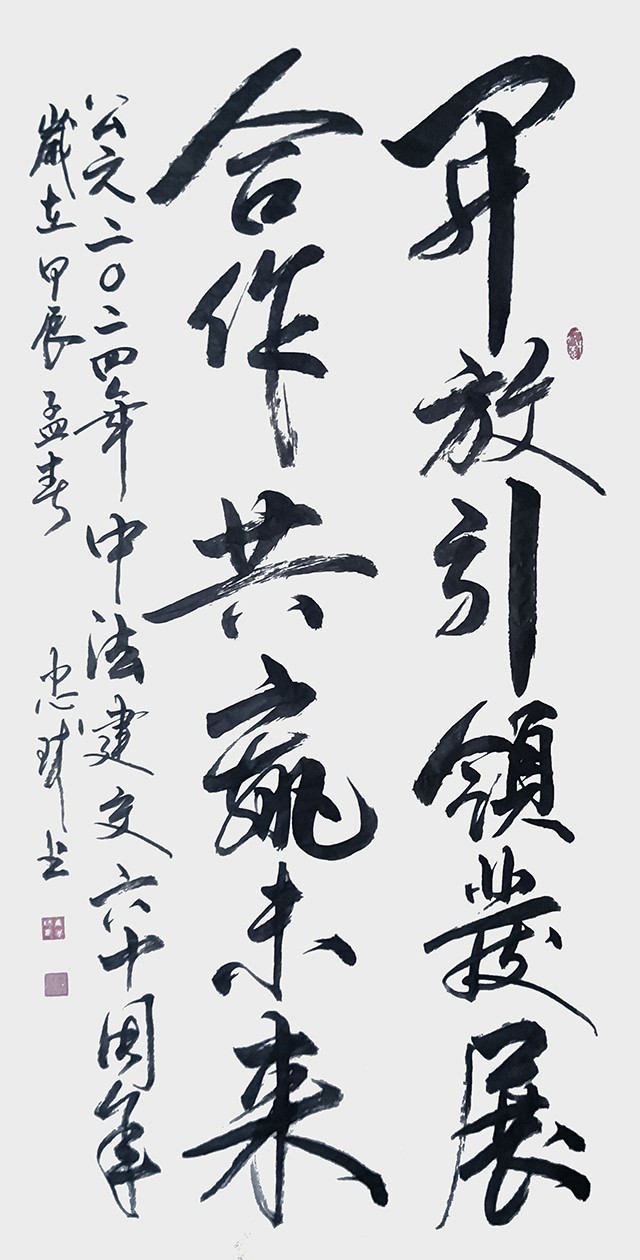 開放引領發展
合作共贏未來
公元二〇二四年中法建交六十周年
歲在甲辰孟春 忠球书